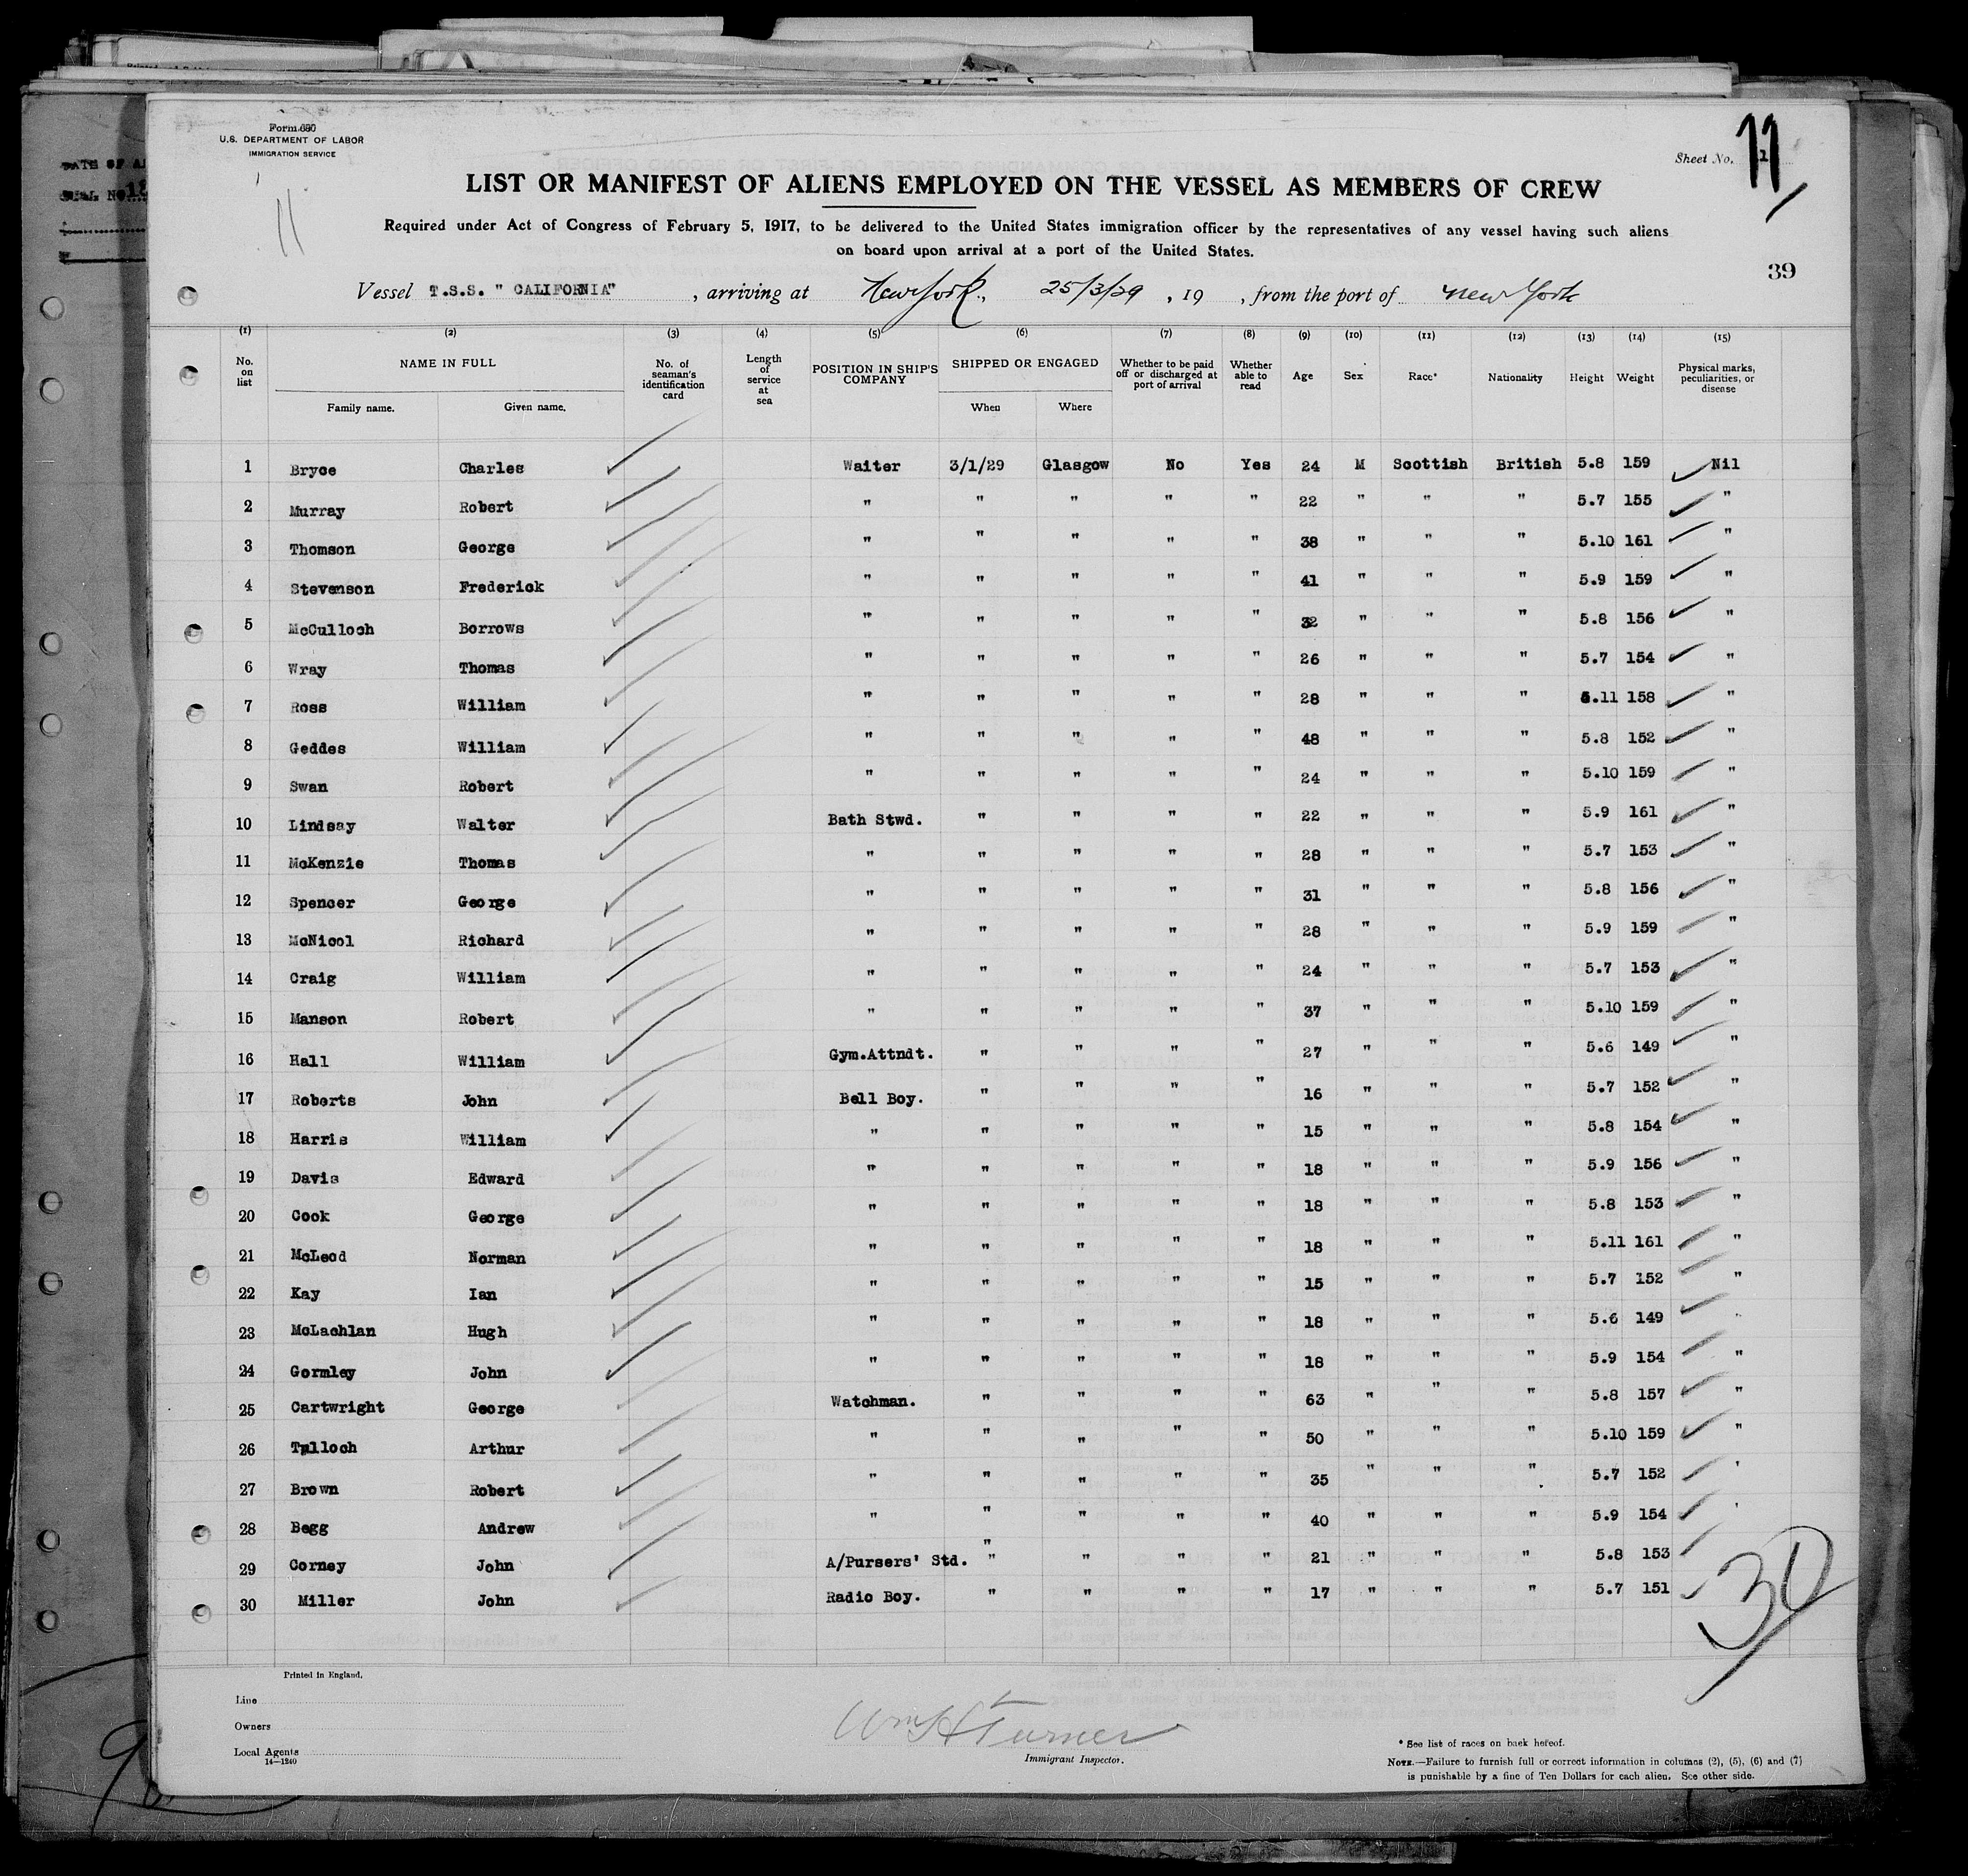 Form 680
U.S. DEPARTMENT OF LABOR
IMMIGRATION SERVICE
Sheet No. 11
11
LIST OR MANIFEST OF ALIENS EMPLOYED ON THE VESSEL AS MEMBERS OF CREW
Required under Act of Congress of February 5, 1917, to be delivered to the United States immigration officer by the representatives of any vessel having such aliens
on board upon arrival at a port of the United States.
39
Vessel T.S.S. " CALIFORNIA" , arriving at New York, 25/3/29 , 19 , from the port of New York
(1) (2) (3) (4) (5) (6) (7) (8) (9) (10) (11) (12) (13) (14) (15)
No. on list NAME IN FULL Family name. Given name. No. of seaman's identification card Length of service at sea POSITION IN SHIP'S COMPANY SHIPPED OR ENGAGED When Where Whether to be paid off or discharged at port of arrival Whether able to read Age Sex Race* Nationality Height Weight Physical marks, peculiarities, or disease
1 Bryce Charles Waiter 3/1/29 Glasgow No Yes 24 M Scottish British 5.8 159 Nil
2 Murray Robert " " " " " 22 " " " 5.7 155 "
3 Thomson George " " " " " 38 " " " 5.10 161 "
4 Stevenson Frederick " " " " " 41 " " " 5.9 159 "
5 McCulloch Borrows " " " " " 32 " " " 5.8 156 "
6 Wray Thomas " " " " " 26 " " " 5.7 154 "
7 Ross William " " " " " 28 " " " 5.11 158 "
8 Geddes William " " " " " 48 " " " 5.8 152 "
9 Swan Robert " " " " " 24 " " " 5.10 159 "
10 Lindsay Walter Bath Stwd. " " " " 22 " " " 5.9 161 "
11 McKenzie Thomas " " " " " 28 " " " 5.7 153 "
12 Spencer George " " " " " 31 " " " 5.8 156 "
13 McNicol Richard " " " " " 28 " " " 5.9 159 "
14 Craig William " " " " " 24 " " " 5.7 153 "
15 Manson Robert " " " " " 37 " " " 5.10 159 "
16 Hall William Gym.Attndt. " " " " 27 " " " 5.6 149 "
17 Roberts John Bell Boy. " " " " 16 " " " 5.7 152 "
18 Harris William " " " " " 15 " " " 5.8 154 "
19 Davis Edward " " " " " 18 " " " 5.9 156 "
20 Cook George " " " " " 18 " " " 5.8 153 "
21 McLeod Norman " " " " " 18 " " " 5.11 161 "
22 Kay Ian " " " " " 15 " " " 5.7 152 "
23 McLachlan Hugh " " " " " 18 " " " 5.6 149
24 Gormley John " " " " " 18 " " " 5.9 154 "
25 Cartwright George Watchman. " " " " 63 " " " 5.8 157 "
26 Tulloch Arthur " " " " " 50 " " " 5.10 159 "
27 Brown Robert " " " " " 35 " " " 5.7 152 '
28 Begg Andrew " " " " " 40 " " " 5.9 154 '
29 Corney John A/Pursers' Std. " " " " 21 " " " 5.8 153
30 Miller John Radio Boy. " " " " 17 " " " 5.7 151
30
Printed in England.
Line
Owners
Local Agents
14—1240
Wm H Turner
Immigrant Inspector.
* See list of races on back hereof.
NOTE.—Failure to furnish full or correct information in columns (2), (5), (6) and (7)
is punishable by a fine of Ten Dollars for each alien. See other side.